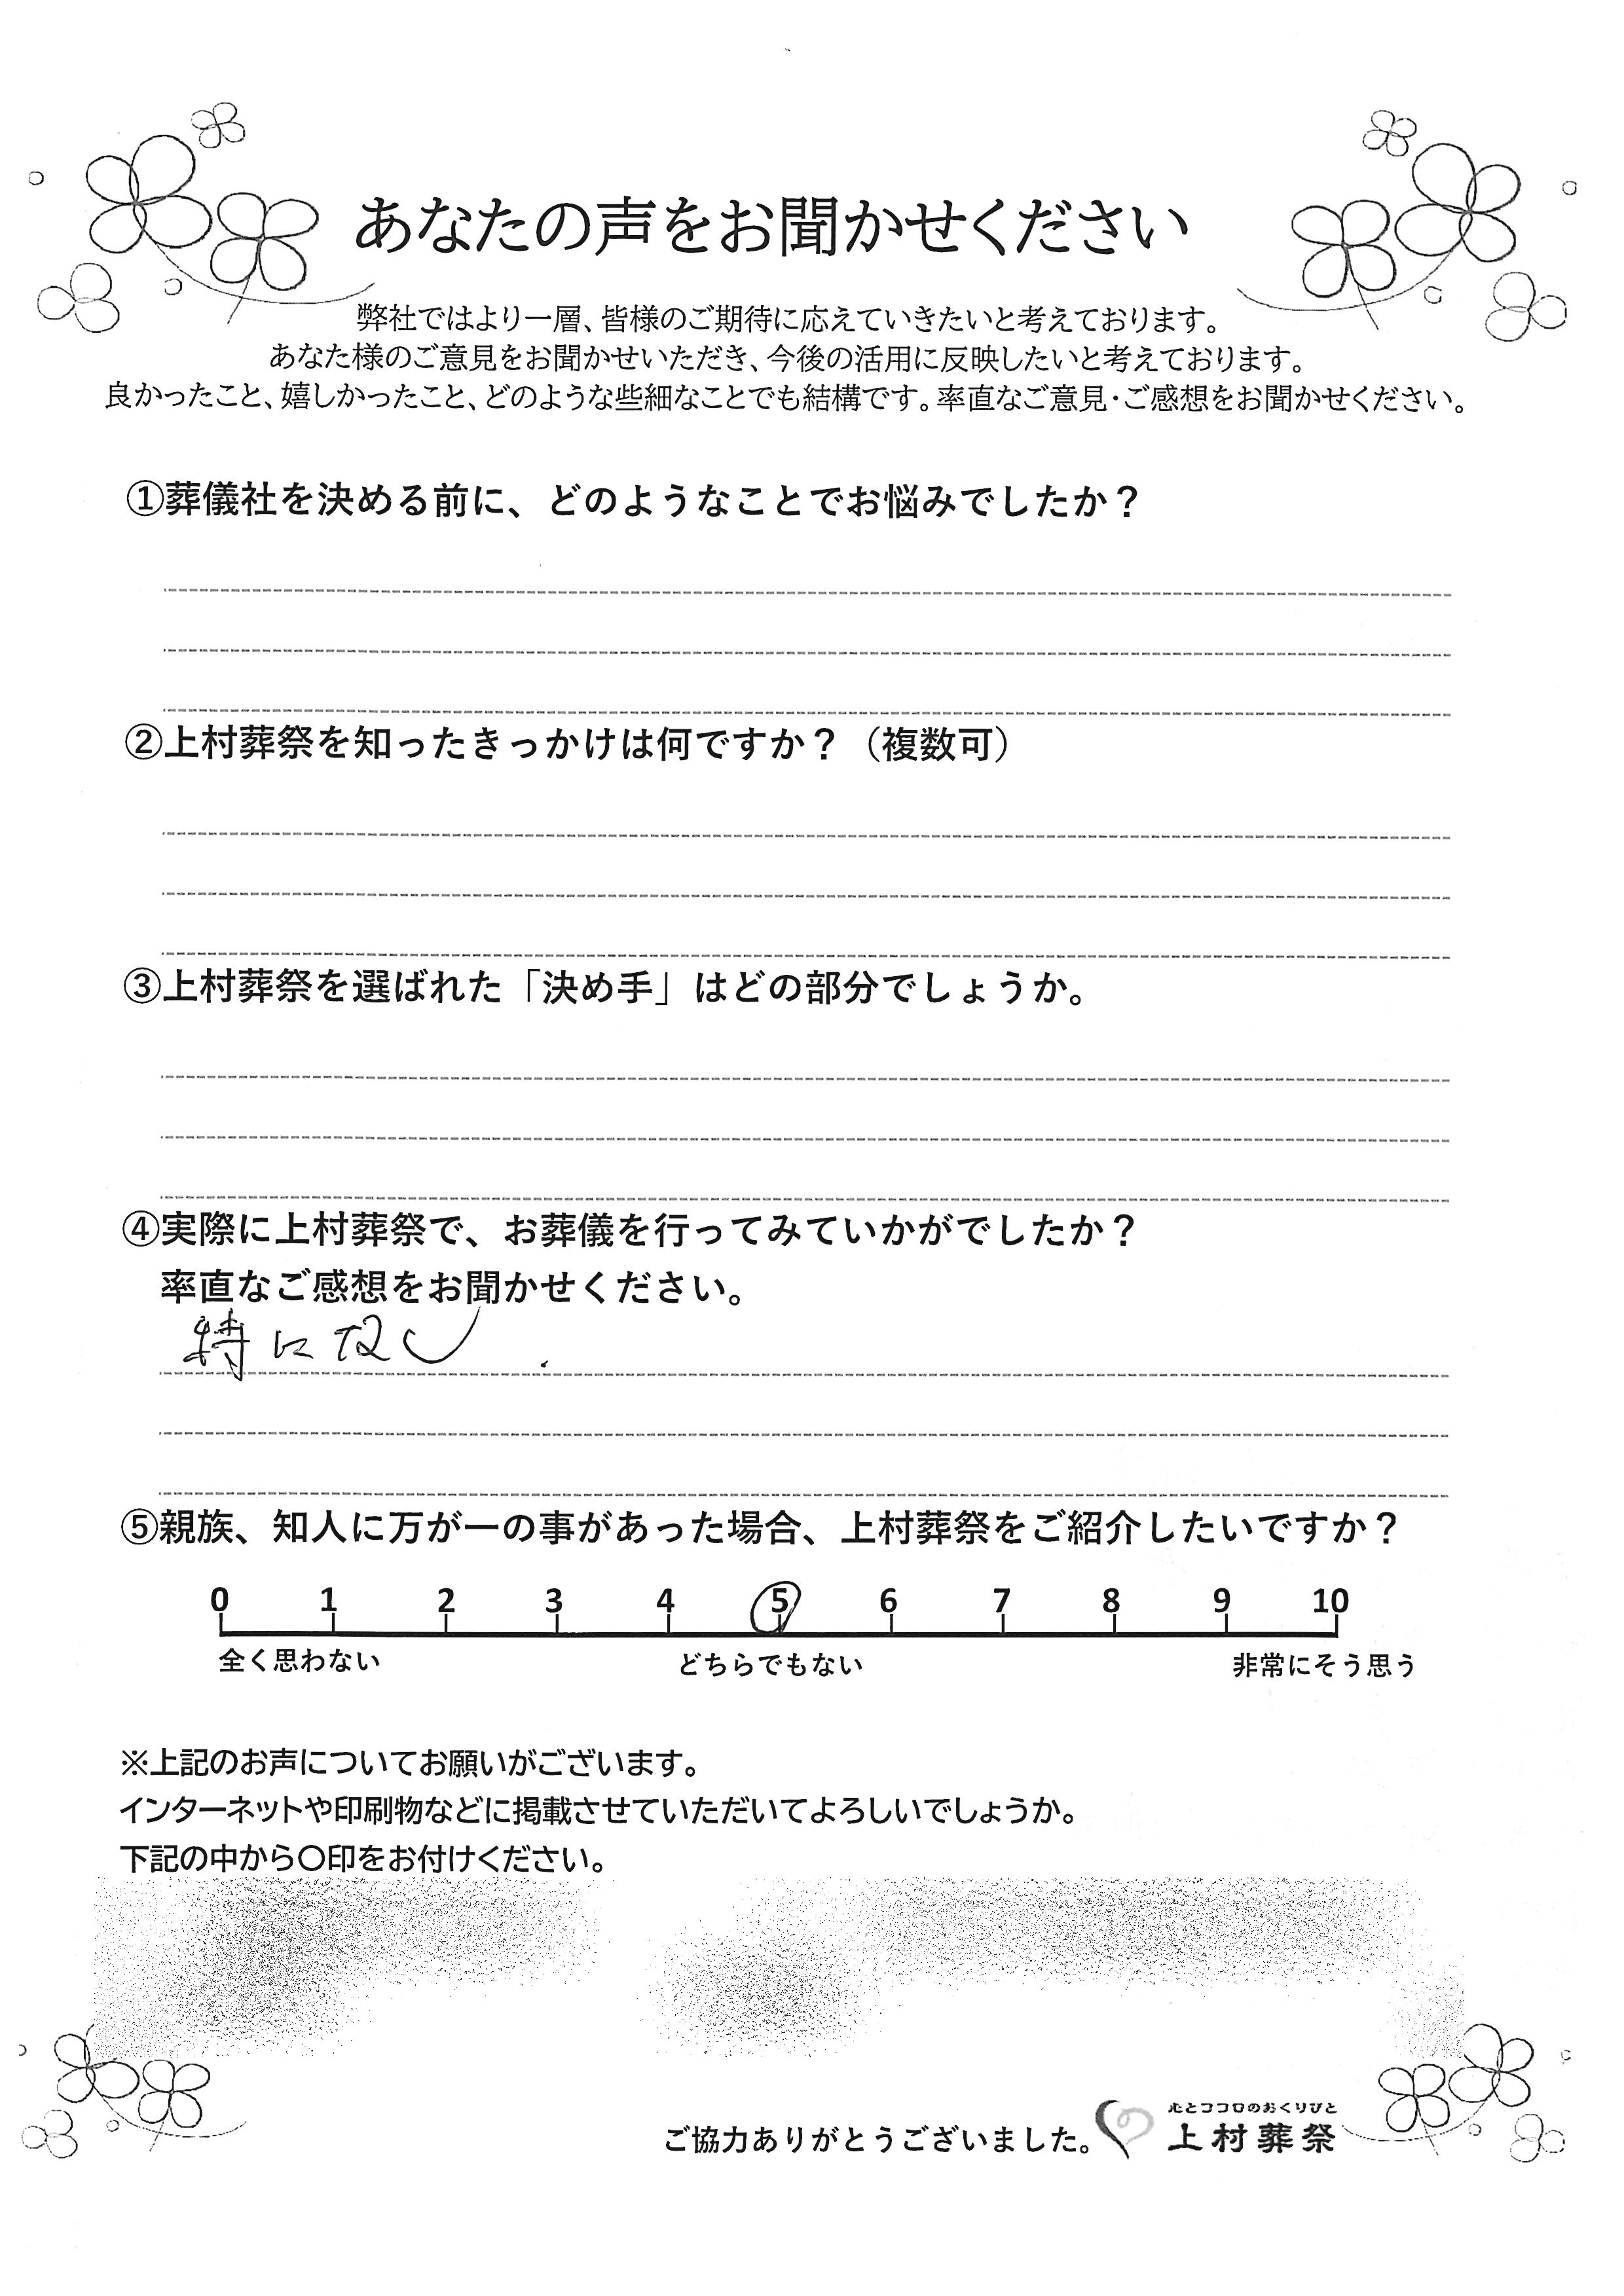 あなたの声をお聞かせください
弊社ではより一層、皆様のご期待に応えていきたいと考えております。
あなた様のご意見をお聞かせいただき、今後の活用に反映したいと考えております。
良かったこと、嬉しかったこと、どのような些細なことでも結構です。率直なご意見・ご感想をお聞かせください。
①葬儀社を決める前に、どのようなことでお悩みでしたか？
②上村葬祭を知ったきっかけは何ですか？（複数可）
③上村葬祭を選ばれた「決め手」はどの部分でしょうか。
④実際に上村葬祭で、お葬儀を行ってみていかがでしたか？
率直なご感想をお聞かせください。
特になし．
⑤親族、知人に万が一の事があった場合、上村葬祭をご紹介したいですか？
0 1 2 3 4 5 6 7 8 9 10
全く思わない どちらでもない 非常にそう思う
※上記のお声についてお願いがございます。
インターネットや印刷物などに掲載させていただいてよろしいでしょうか。
下記の中から〇印をお付けください。
心とココロのおくりびと
ご協力ありがとうございました。上村葬祭